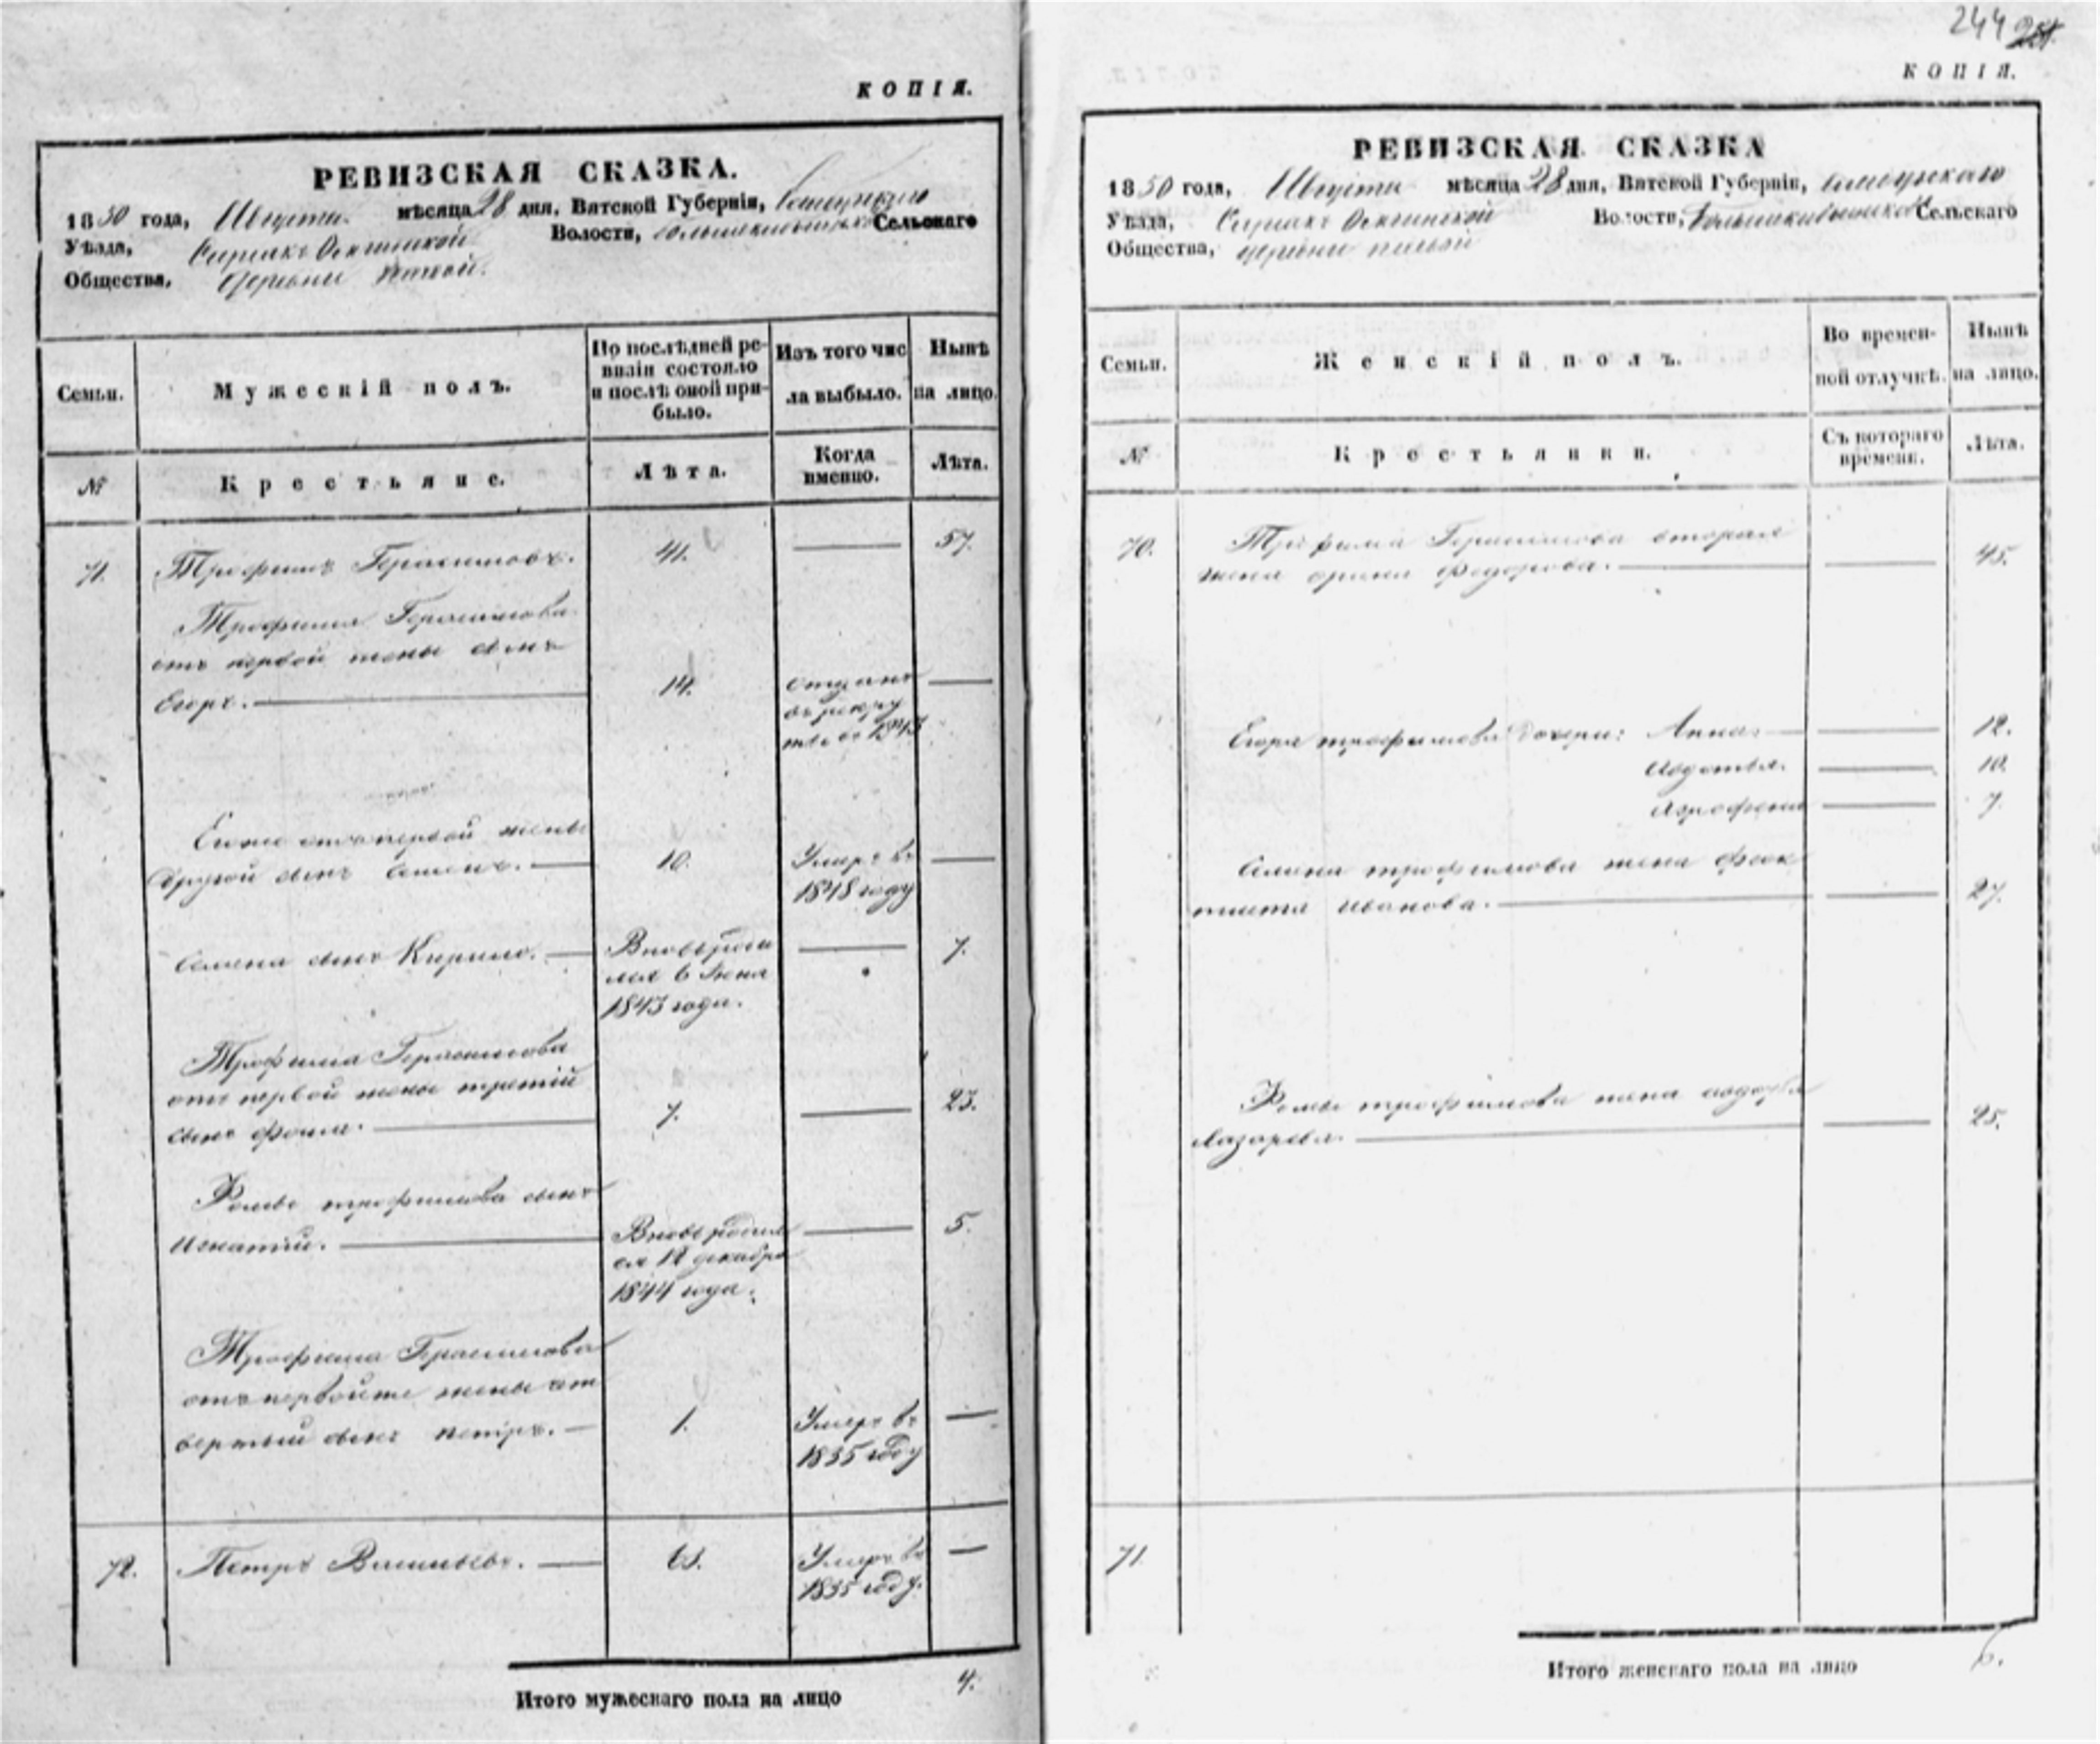 КОПІЯ.
РЕВИЗСКАЯ СКАЗКА.
1850 года, Августа мѣсяца 28 дня, Вятской Губерніи,
Уѣзда, Волости, Сельскаго
Общества, деревни
Семьи. Мужескій полъ. По послѣдней ревизіи состояло и послѣ оной прибыло. Изъ того числа выбыло. Нынѣ на лицо.
№ Крестьяне. Лѣта. Когда именно. Лѣта.
71. Трофимъ Герасимовъ. 41. 57.
Трофима Герасимова
отъ первой жены сынъ
Егоръ. 14. отданъ
въ рекру
ты въ 1843
Егоже отъ первой жены
другой сынъ Семенъ. 10. Умеръ въ
1848 году
Семена сынъ Кирило. Вновь роди 7.
лся 6 Іюня
1843 года.
Трофима Герасимова
отъ первой жены третій
сынъ Фома. 7. 23.
Фомы трофимова сынъ
игнатій. Вновь родил 5.
ся 12 декабря
1844 года.
Трофима Герасимова
отъ первой же жены чет
вертый сынъ петръ. 1. Умеръ въ
1835 году
72. Петръ Васильевъ. 61. Умеръ въ
1835 году.
Итого мужескаго пола на лицо 4.
244
КОПІЯ.
РЕВИЗСКАЯ СКАЗКА
1850 года, Августа мѣсяца 28 дня, Вятской Губерніи,
Уѣзда, Волости, Сельскаго
Общества, деревни
Семьи. Женскій полъ. Во временной отлучкѣ. Нынѣ на лицо.
№ Крестьянки. Съ котораго времени. Лѣта.
70. Трофима Герасимова вторая
жена орина Федорова. 45.
Егора трофимова дочери: Анна. 12.
Авдотья. 10.
Агрофена 7.
Семена трофимова жена Феок
тиста иванова. 27.
Фомы трофимова жена авдотья
Лазарева. 25.
71
Итого женскаго пола на лицо 6.